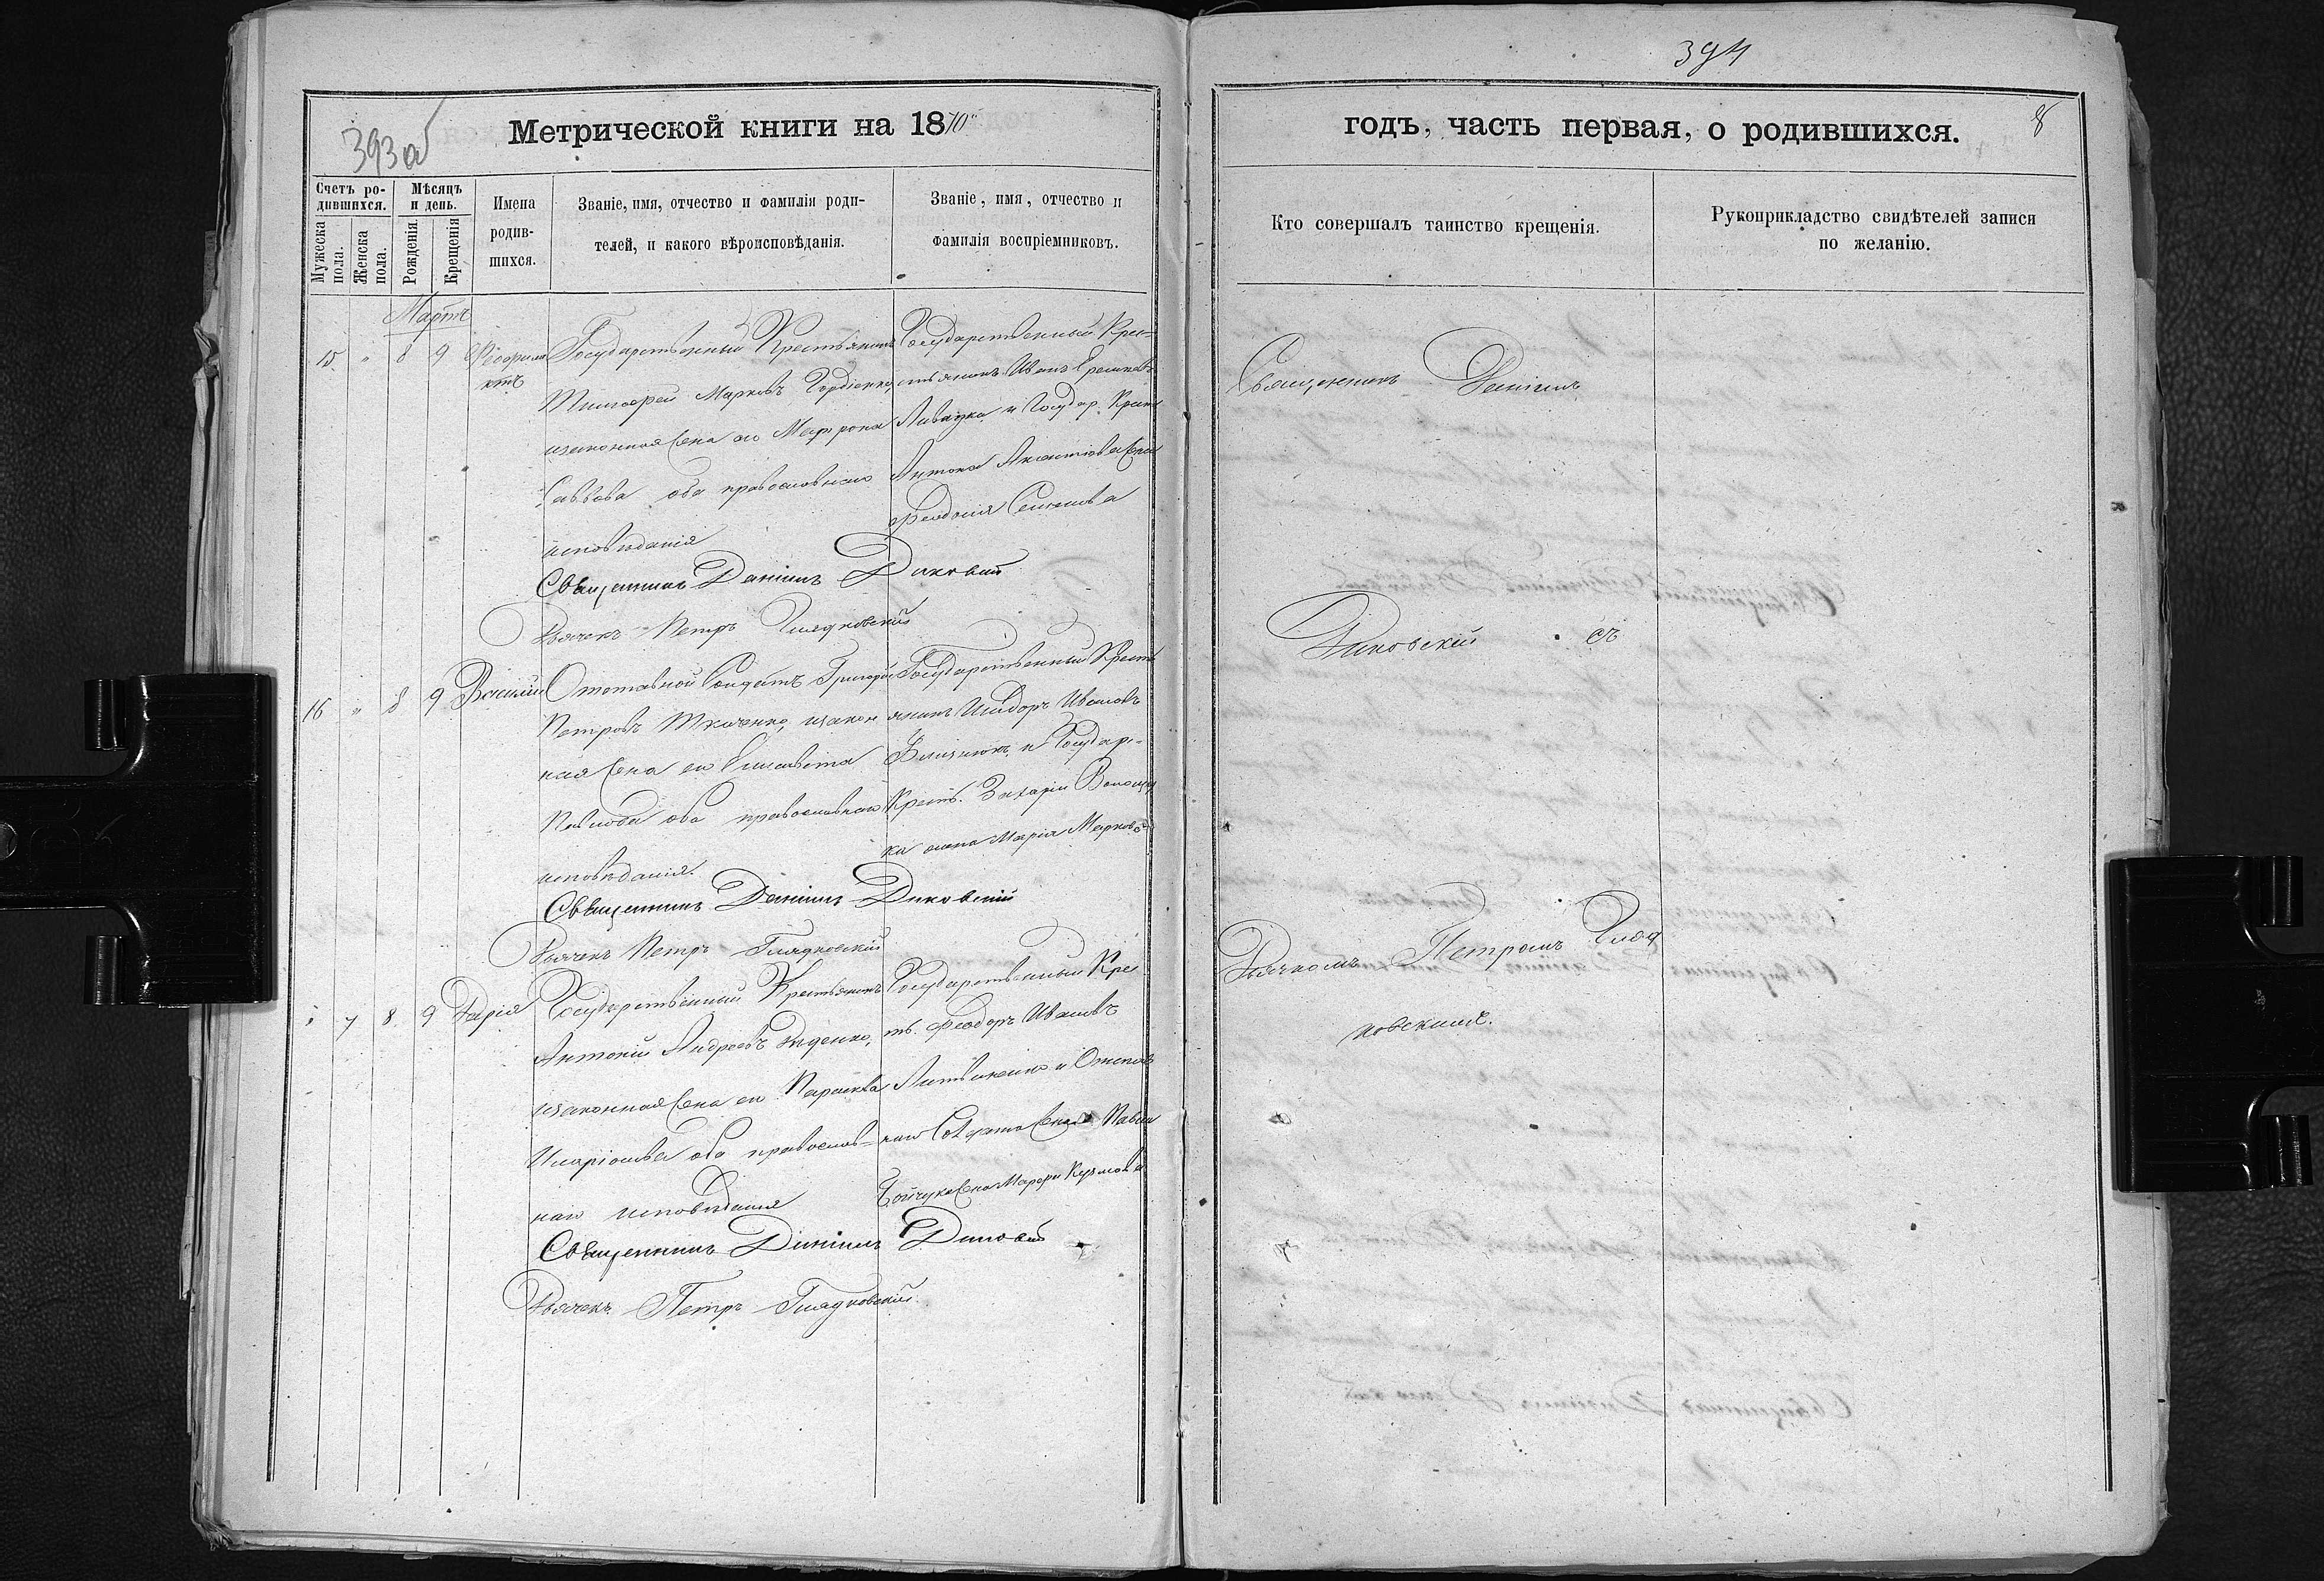 394
393 об
Метрической книги на 1870
годъ, часть первая, о родившихся.
8
Счетъ ро-
дившихся.
Мужеска
пола.
Женска
пола.
Мѣсяцъ
и день.
Рожденія.
Крещенія
Имена
родив-
шихся.
Званіе, имя, отчество и фамилія роди-
телей, и какого вѣроисповѣданія.
Званіе, имя, отчество и
фамилія воспріемниковъ.
Кто совершалъ таинство крещенія.
Рукоприкладство свидѣтелей записи
по желанію.
Мартъ
15 " 8 9
Государственный Крестьянинъ
Тимофей Марковъ Гордіенко,
и законная жена его Матрона
Саввова оба православнаго
исповѣданія
Государственный Крес-
тьянинъ Иванъ
и Госудр. Крест.
Антона жена
Феодосія Семенова
Священникъ Даніилъ Диковскій
Дьячекъ Петръ Гладковскій
16 " 8 9 Василій
Отставной Солдатъ Григорій
Петровъ Ткаченко, и закон
ная жена его Елисавета
Павлова оба православнаго
исповѣданія.
Государственный Кресть
янинъ Исидоръ Ивановъ
и Государ.
Крест. Захарія Волощу
ка жена Марія Маркова
Священникъ Даніилъ Диковскій
Дьячекъ Петръ Гладковскій
" 7 8 9 Дарія
Государственный Крестьянинъ
Антоній Андреевъ Диденко,
и законная жена его Параскева
Иларіонова оба православ-
наго исповѣданія
Государственный Крес
ть. Феодоръ Ивановъ
Литвиненко и
жена Павла
жена Марфа Кузмова
Священникъ Даніилъ Диковскій
Дьячекъ Петръ Гладковскій
Священникъ Даніилъ
Диковскій съ
Дьячкомъ Петромъ Глад
ковскимъ.